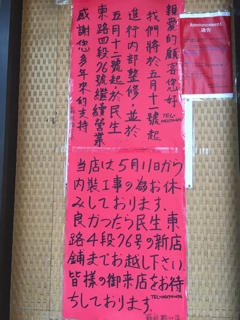 親愛的顧客您好,
我們將於五月十一號起
進行內部整修,並於
五月十二號起,於民生
東路四段96號繼續營業
感謝您多年來的支持
Announcement
当店は、5月11日から
内装工事の為お休
みしております。
良かったら民生東
路4段96号の新店
舗までお越し下さい。
皆様の御来店をお待
ちしております。